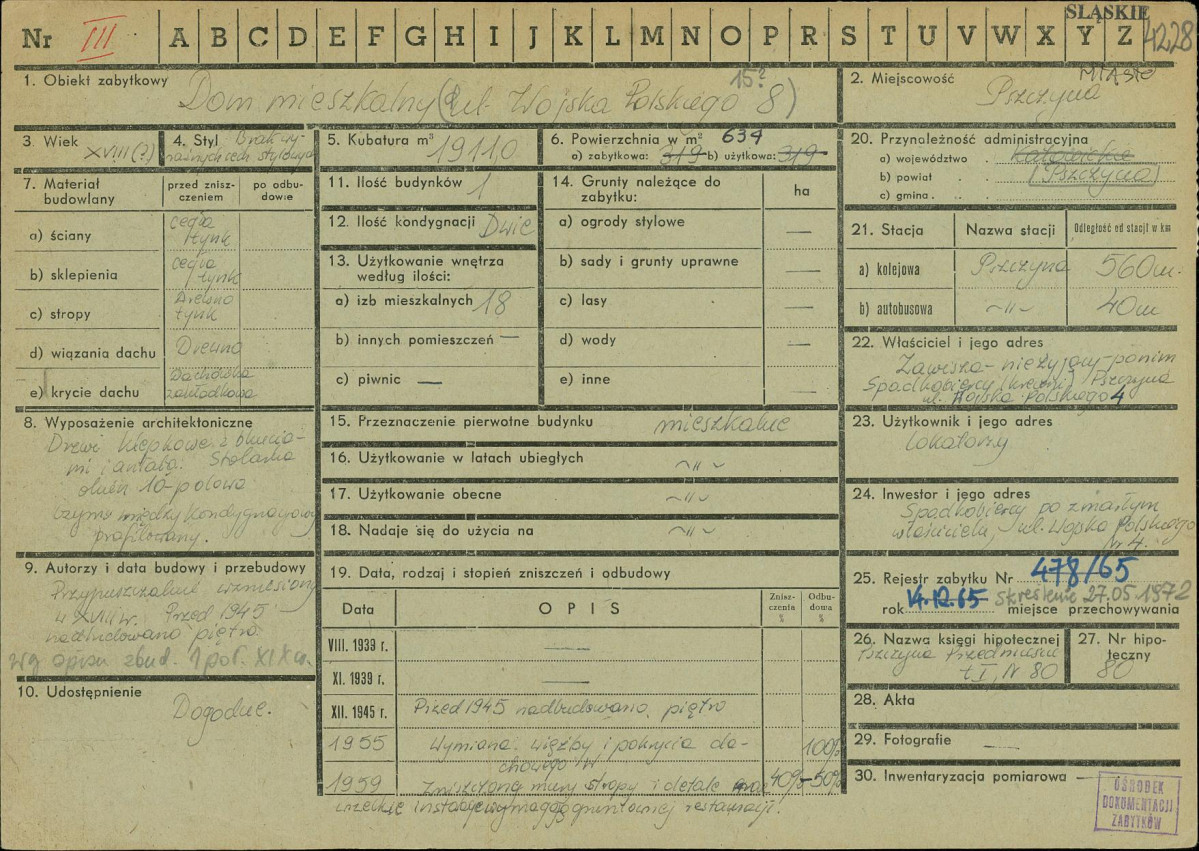 ŚLĄSKIE
4228
Nr III A B C D E F G H I J K L M N O P R S T U V W X Y Z
1. Obiekt zabytkowy
Dom mieszkalny (ul. Wojska Polskiego 8)
15?
2. Miejscowość
MIASTO
Pszczyna
3 Wiek
XVIII (?)
4. Styl Brak wy-
raźnych cech stylowych
5. Kubatura m³
1911,0
6. Powierzchnia w m² 634
a) zabytkowa: 319 b) użytkowa: 319
20. Przynależność administracyjna
a) województwo . katowickie
b) powiat . . Pszczyna
c) gmina . . .
7. Materiał
budowlany
przed znisz-
czeniem
po odbu-
dowie
a) ściany
cegła
tynk
b) sklepienia
cegła
tynk
c) stropy
Drewno
tynk
d) wiązania dachu Drewno
e) krycie dachu
Dachówka
zakładkowa
11. Ilość budynków 1
12. Ilość kondygnacji Dwie
13. Użytkowanie wnętrza
według ilości:
a) izb mieszkalnych 18
b) innych pomieszczeń —
c) piwnic —
14. Grunty należące do
zabytku:
ha
a) ogrody stylowe —
b) sady i grunty uprawne —
c) lasy —
d) wody —
e) inne —
21. Stacja
Nazwa stacji
Odległość od stacji w km
a) kolejowa Pszczyna 560 m.
b) autobusowa ~"~ 40 m
22. Właściciel i jego adres
Zawisza - nieżyjący - ponim
Spadkobiercy (krewni) Pszczyna
ul. Wojska Polskiego 4
8. Wyposażenie architektoniczne
Drzwi klepkowe z okucia-
mi i antabą. Stolarka
okien 10-polowa
Gzyms między kondygnacyjny
profilowany.
15. Przeznaczenie pierwotne budynku mieszkalne
16. Użytkowanie w latach ubiegłych ~"~
17. Użytkowanie obecne ~"~
18. Nadaje się do użycia na ~"~
23. Użytkownik i jego adres
Lokatorzy
24. Inwestor i jego adres
Spadkobiercy po zmarłym
właścicielu, ul. Wojska Polskiego
nr 4.
9. Autorzy i data budowy i przebudowy
Przypuszczalnie wzniesiony
w XVIII w. Przed 1945
nadbudowano piętro
wg opisu zbud. 1 poł. XIX w.
10. Udostępnienie
Dogodne.
19. Data, rodzaj i stopień zniszczeń i odbudowy
Data
OPIS
Znisz-
czenia
%
Odbu-
dowa
%
VIII. 1939 r. —
XI. 1939 r. —
XII. 1945 r. Przed 1945 nadbudowano piętro
1955 Wymiana więźby i pokrycia da-
chowego w 100%
1959 Zniszczone mury stropy i detale oraz 40% - 50%
wszelkie instalacje wymagają gruntownej restauracji.
25. Rejestr zabytku Nr 478/65
rok 14.12.65 skreślenie 27.05.1972
miejsce przechowywania
26. Nazwa księgi hipotecznej
Pszczyna Przedmieście
t I, Nr 80
27. Nr hipo-
teczny
80
28. Akta
29. Fotografie —
30. Inwentaryzacja pomiarowa —
OŚRODEK
DOKUMENTACJI
ZABYTKÓW